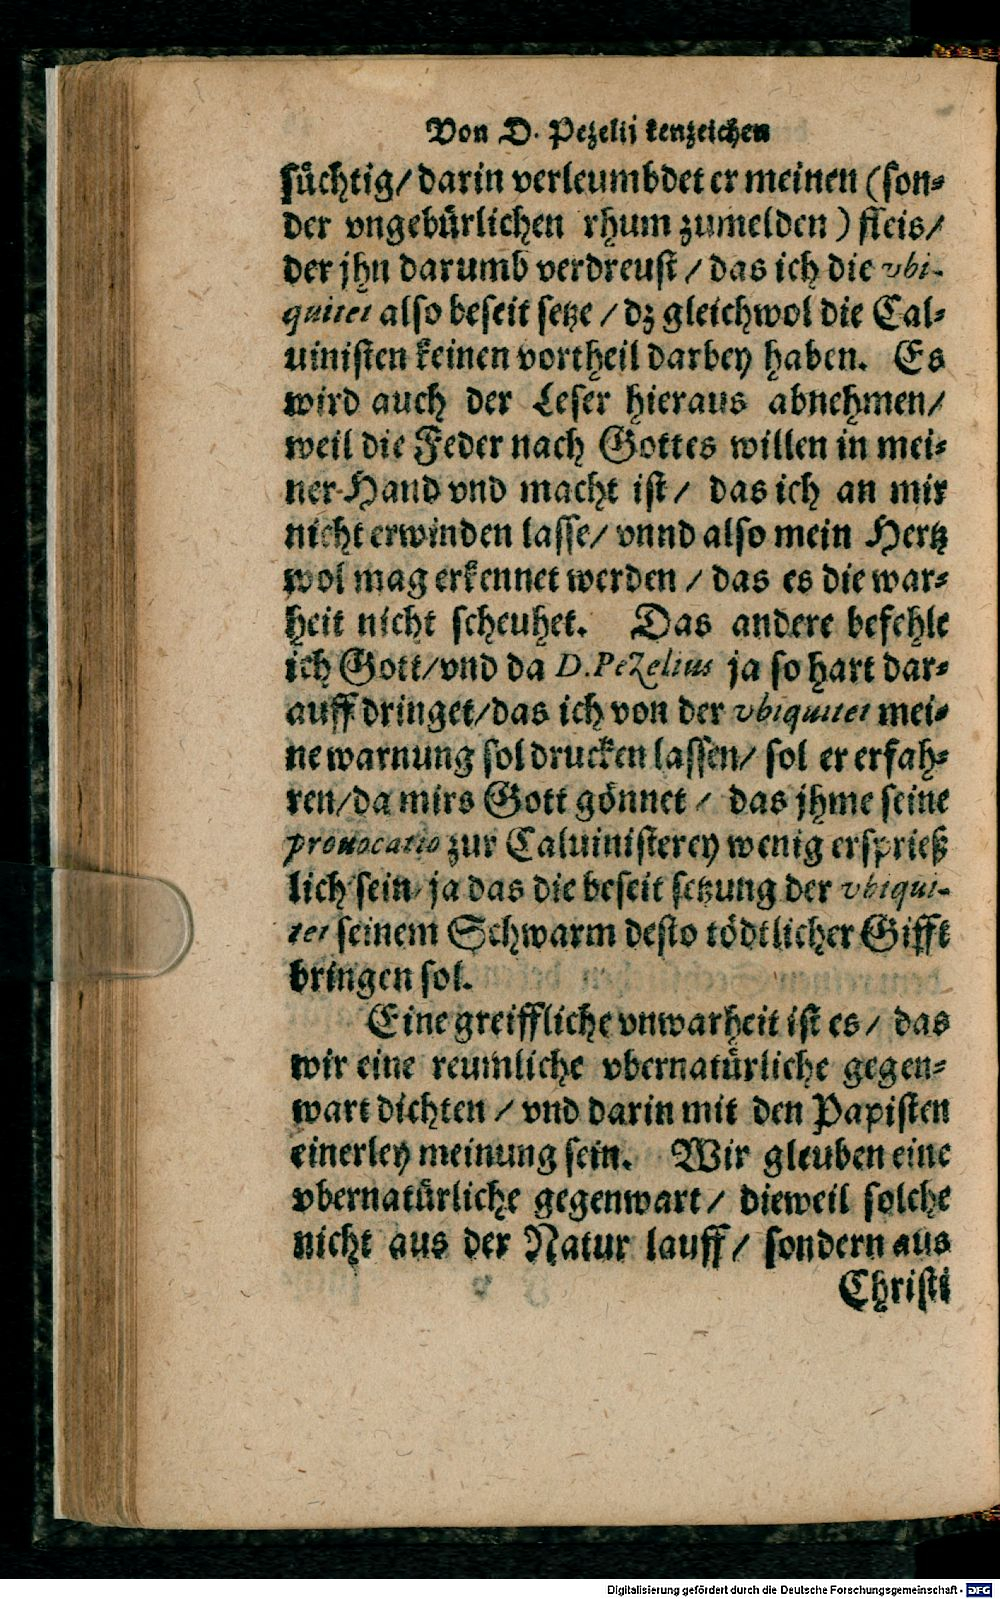 Von D. Pezelii kenzeichen
süchtig/ darin verleumbdet er meinen (son-
der vngebürlichen rhum zumelden) fleis/
der jhn darumb verdreust/ das ich die vbi-
quitet also beseit setze/ dz gleichwol die Cal-
uinisten keinen vortheil darbey haben. Es
wird auch der Leser hieraus abnehmen/
weil die Feder nach Gottes willen in mei-
ner Hand vnd macht ist/ das ich an mir
nicht erwinden lasse/ vnnd also mein Hertz
wol mag erkennet werden/ das es die war-
heit nicht scheuhet. Das andere befehle
ich Gott/ vnd da D. Pezelius ja so hart dar-
auff dringet/ das ich von der vbiquitet mei-
ne warnung sol drucken lassen/ sol er erfah-
ren/ da mirs Gott gönnet/ das jhme seine
prouocatio zur Caluinisterey wenig ersprieß
lich sein/ ja das die beseit setzung der vbiqui-
tet seinem Schwarm desto tödtlicher Gifft
bringen sol.
Eine greiffliche vnwarheit ist es/ das
wir eine reumliche vbernatürliche gegen-
wart dichten/ vnd darin mit den Papisten
einerley meinung sein. Wir gleuben eine
vbernatürliche gegenwart/ dieweil solche
nicht aus der Natur lauff/ sondern aus
Christi
Digitalisierung gefördert durch die Deutsche Forschungsgemeinschaft - DFG